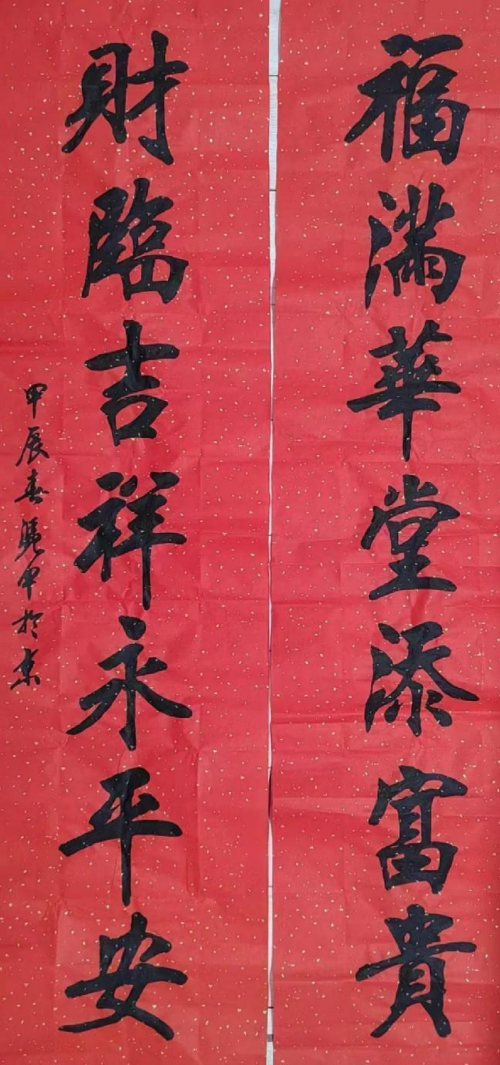 福滿華堂添富貴
財臨吉祥永平安
甲辰春曉甲於京